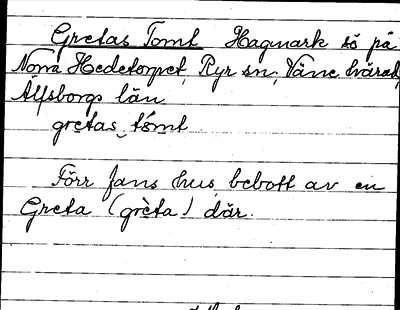 Gretas Tomt Hagmark sö på
Norra Hedetorpet, Ryr sn, Väne härad,
Älfsborgs län
gretas_tómt
Förr fans hus, bebott av en
Greta (grèta) där.